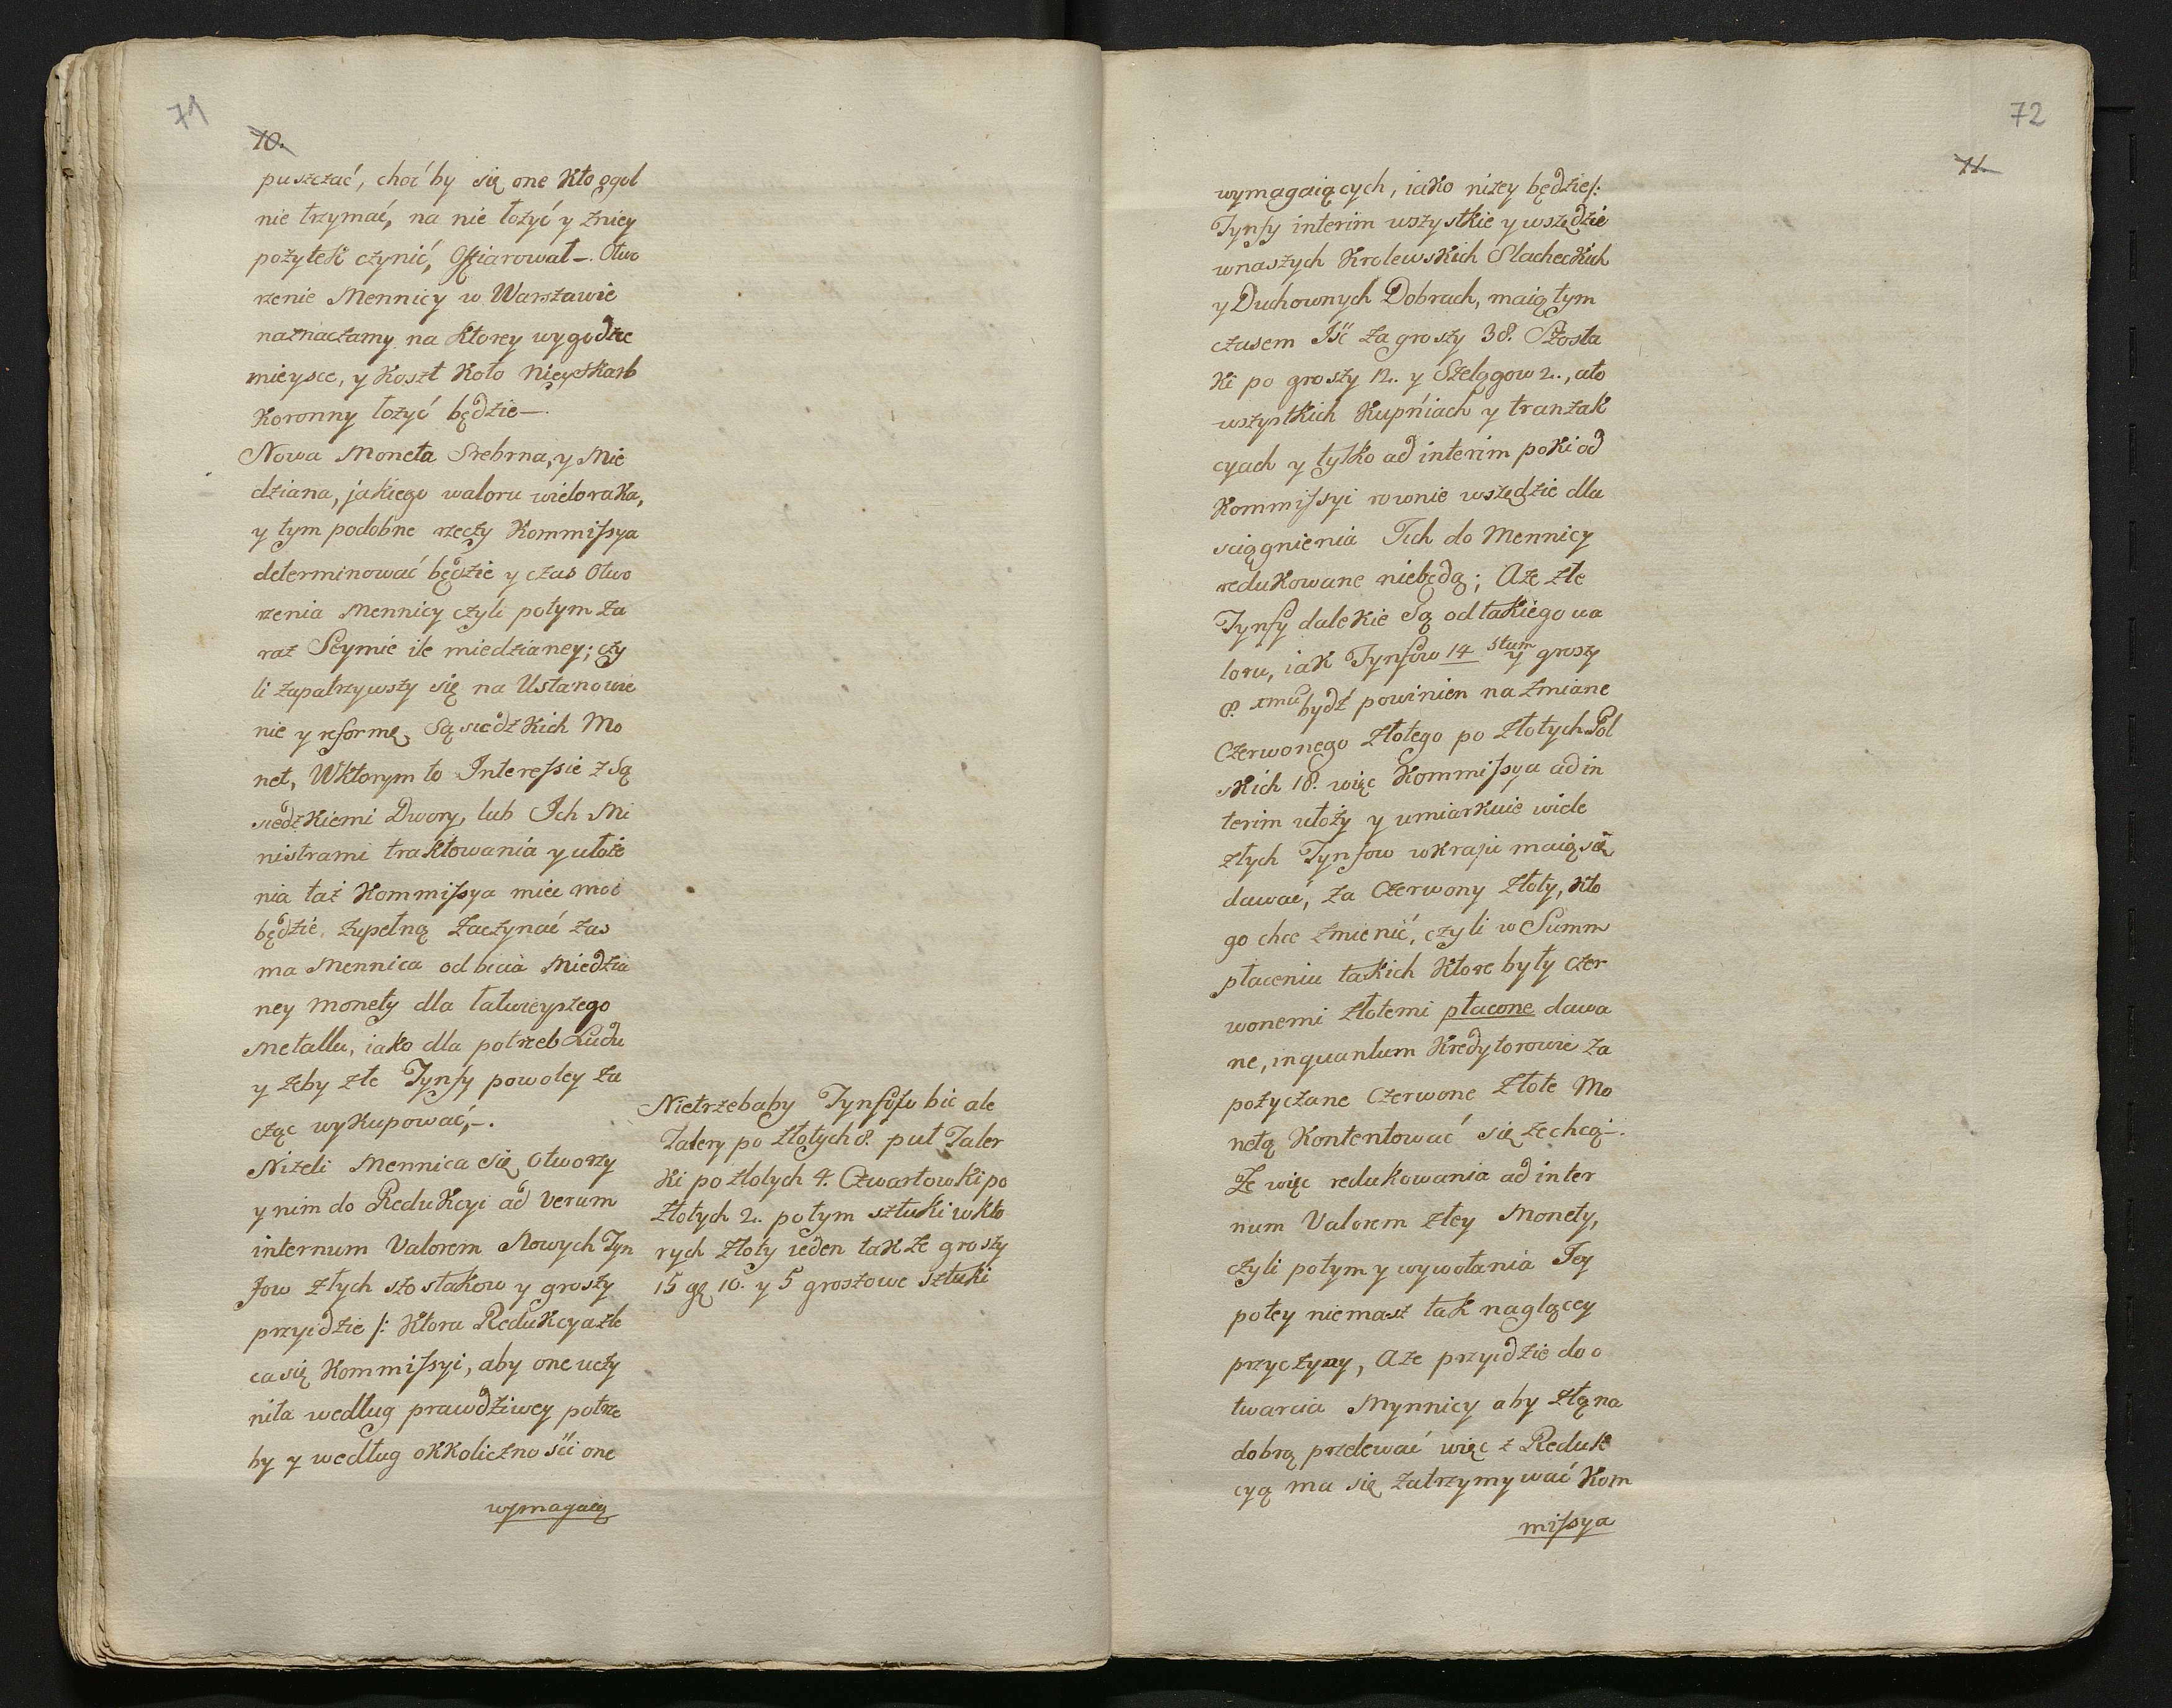 71
70.
puszczać, choć by się one Kto ogol
nie trzymać, na nie łożyć y zniey
pożytek czynić, Offiarował –. Otwo
rzenie Mennicy w Warszawie
naznaczamy na Ktorey wygodne
mieysce, y Koszt Koło Nieyskarb
Koronny łożyć będzie –.
Nowa Moneta Srebrna, y Mie
dziana, jakiego waloru wieloraka,
y tym podobne rzeczy Kommissya
determinować będzie y czas Otwo
rzenia Mennicy czyli potym za
raz Seymie ile miedzianey; czy
li zapatrzywszy się na Ustanowie
nie y reformę Sąsiedzkich Mo
net, Wktorym to Interessie z Są
siedzkiemi Dwory, lub Ich Mi
nistrami traktowania y ułoże
nia taż Kommissya mieć moc
będzie, zupełną Zaczynać zas
ma Mennica od bicia Miedzia
ney monety dla łatwieyszego
Metallu, iako dla potrzeb Ludu
y żeby złe Tynfy powoley za
cząc wykupować, –.
Niżeli Mennica się Otworzy
y nim do Redukcyi ad verum
internum Valorem Nowych Tyn
fow złych szostakow y groszy
przyidzie /: Ktora Redukcya zle
ca się Kommissyi, aby one uczy
niła według prawdziwey potrze
by y według okkolicznosći one
wymagaią
Nietrzebaby Tynfow bic ale
Talery po złotych 8. puł Taler
Ki po złotych 4. Czwartowki po
złotych 2. potym sztuki wkto
rych złoty ieden także groszy
15 gę 10. y 5 groszowe sztuki
72
71.
wymagaiących, iako niżey będzie /:
Tynfy interim wszystkie y wszędzie
wnaszych Krolewskich Slacheckich
y Duchownych Dobrach, maią tym
czusem Iść za groszy 38. Szosta
Ki po groszy 12. y Szelągow 2., ato
wszystkich Kupńiach y tranzak
cyach y tylko ad interim poki od
Kommissyi rownie wszędzie dla
sciągnienia Ich do Mennicy
redukowane niebędą; Aże złe
Tynfy dalekie Są od takiego wa
loru, iak Tynfow 14 stum y groszy
8. xmu bydź powinien na zmiane
Czerwonego złotego po złotych Pol
skich 18. więc Kommissya ad in
terim ułoży y umiarkuie wiele
złych Tynfow wkraju maią się
dawać, za Czerwony złoty, Kto
go chce zmienić, czyli w Summ
płaceniu takich Ktore były czer
wonemi złotemi płacone dawa
ne, inquantum Kredytorowie za
pożyczane Czerwone złote Mo
netą Kontentować się zechcą –.
Ze więc redukowania ad inter
num Valorem złey Monety,
czyli potym y wywołania Tey
potey niemasz tak naglącey
przyczyny, Aże przyidzie do o
twarcia Mynnicy aby złą na
dobrą przelewać więc z Reduk
cyą ma się zatrzymywać Kom
missya